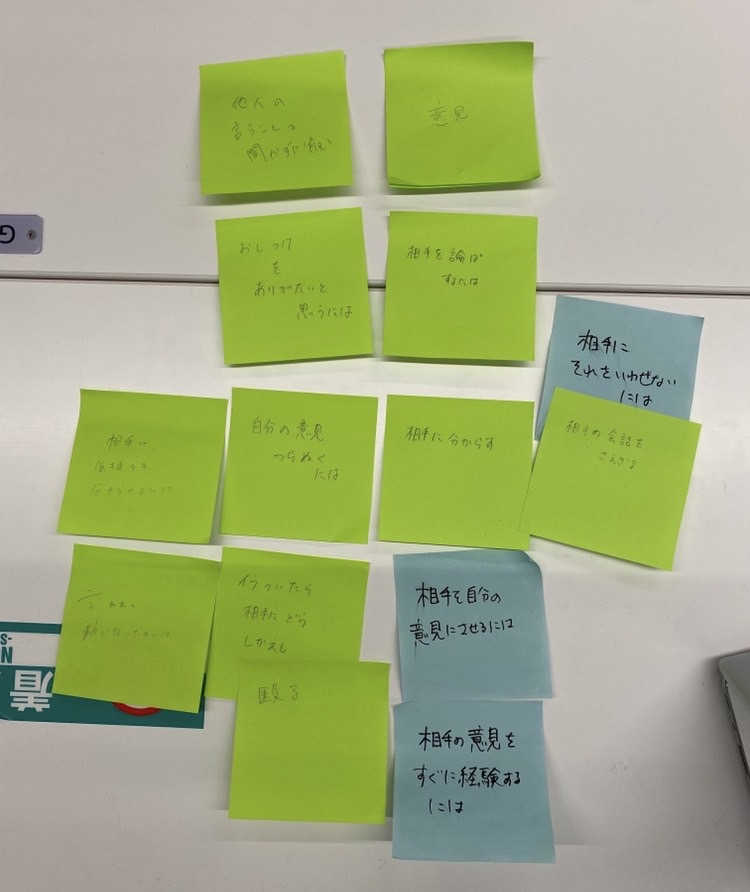 他人の
言うことを
聞かずに
意見
おしつけ
を
ありがたいと
思うには
相手を論ぱ
するには
相手に
それをいわせない
には
相手に
気持ちを
分からせるには
自分の意見
つらぬく
には
相手に分からす
相手の会話を
さえぎる
イラついたら
相手にどう
しかえし
相手を自分の
意見にさせるには
殴る
相手の意見を
すぐに経験する
には
G
盾